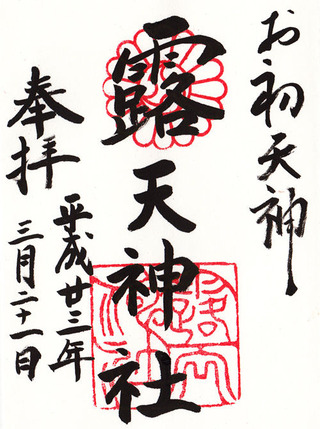 お初天神
露天神社
奉拝
平成廿三年
三月二十一日